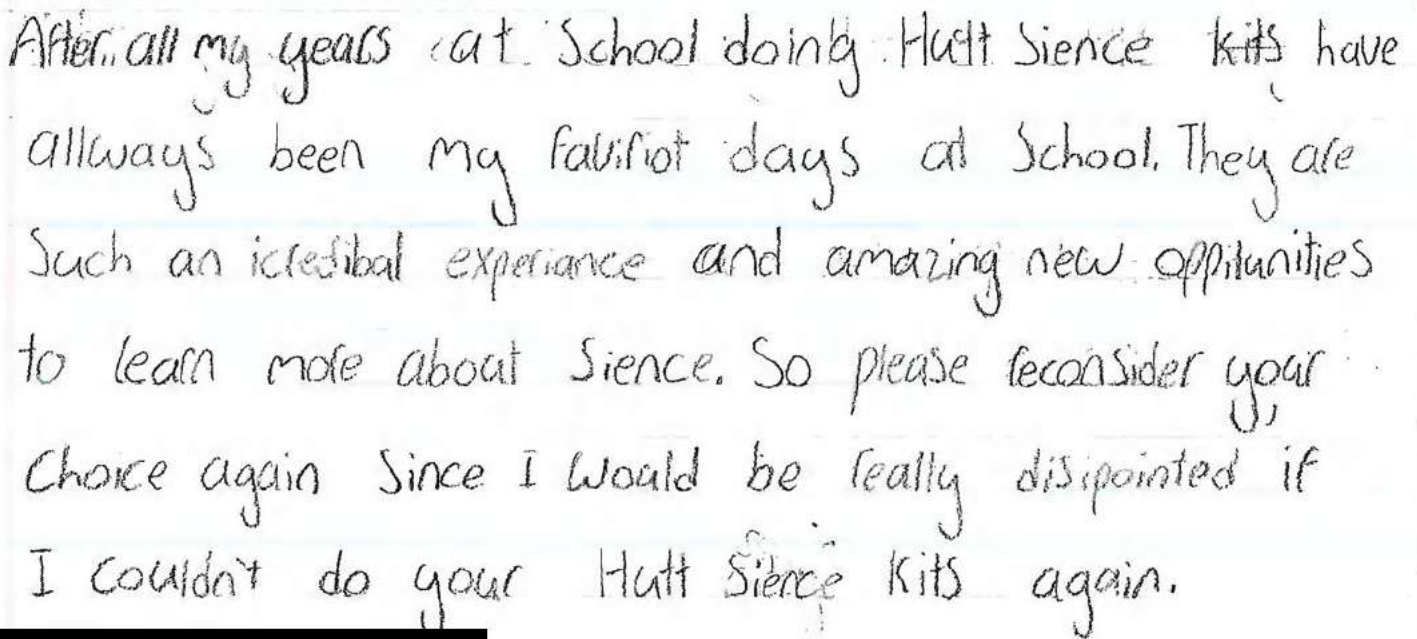 After all my years at School doing Hutt Sience kits have
allways been my favifiot days at School. They are
Such an icredibal experiance and amazing new oppitunities
to learn more about Sience. So please reconsider your
Choice again Since I Would be really disipointed if
I couldn't do your Hutt Sience Kits again.